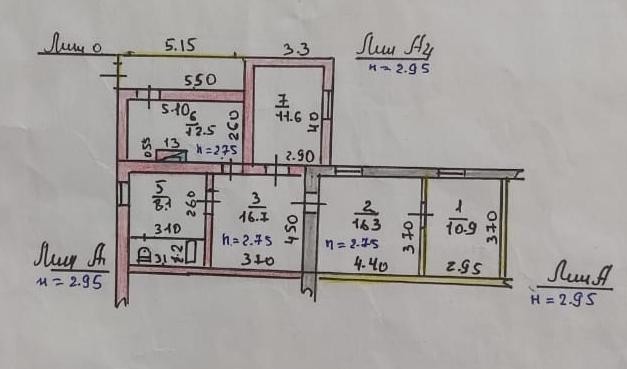 Лит о
5.15
3.3
Лит А4
н = 2.95
5.50
5.10
6
12.5
260
7
11.6
40
0.55
13
h = 2.75
2.90
5
8.1
260
3.10
3
16.7
450
h = 2.75
3.70
2
16.3
370
h = 2.75
4.40
1
10.9
370
2.95
Лит А
н = 2.95
Лит А
н = 2.95